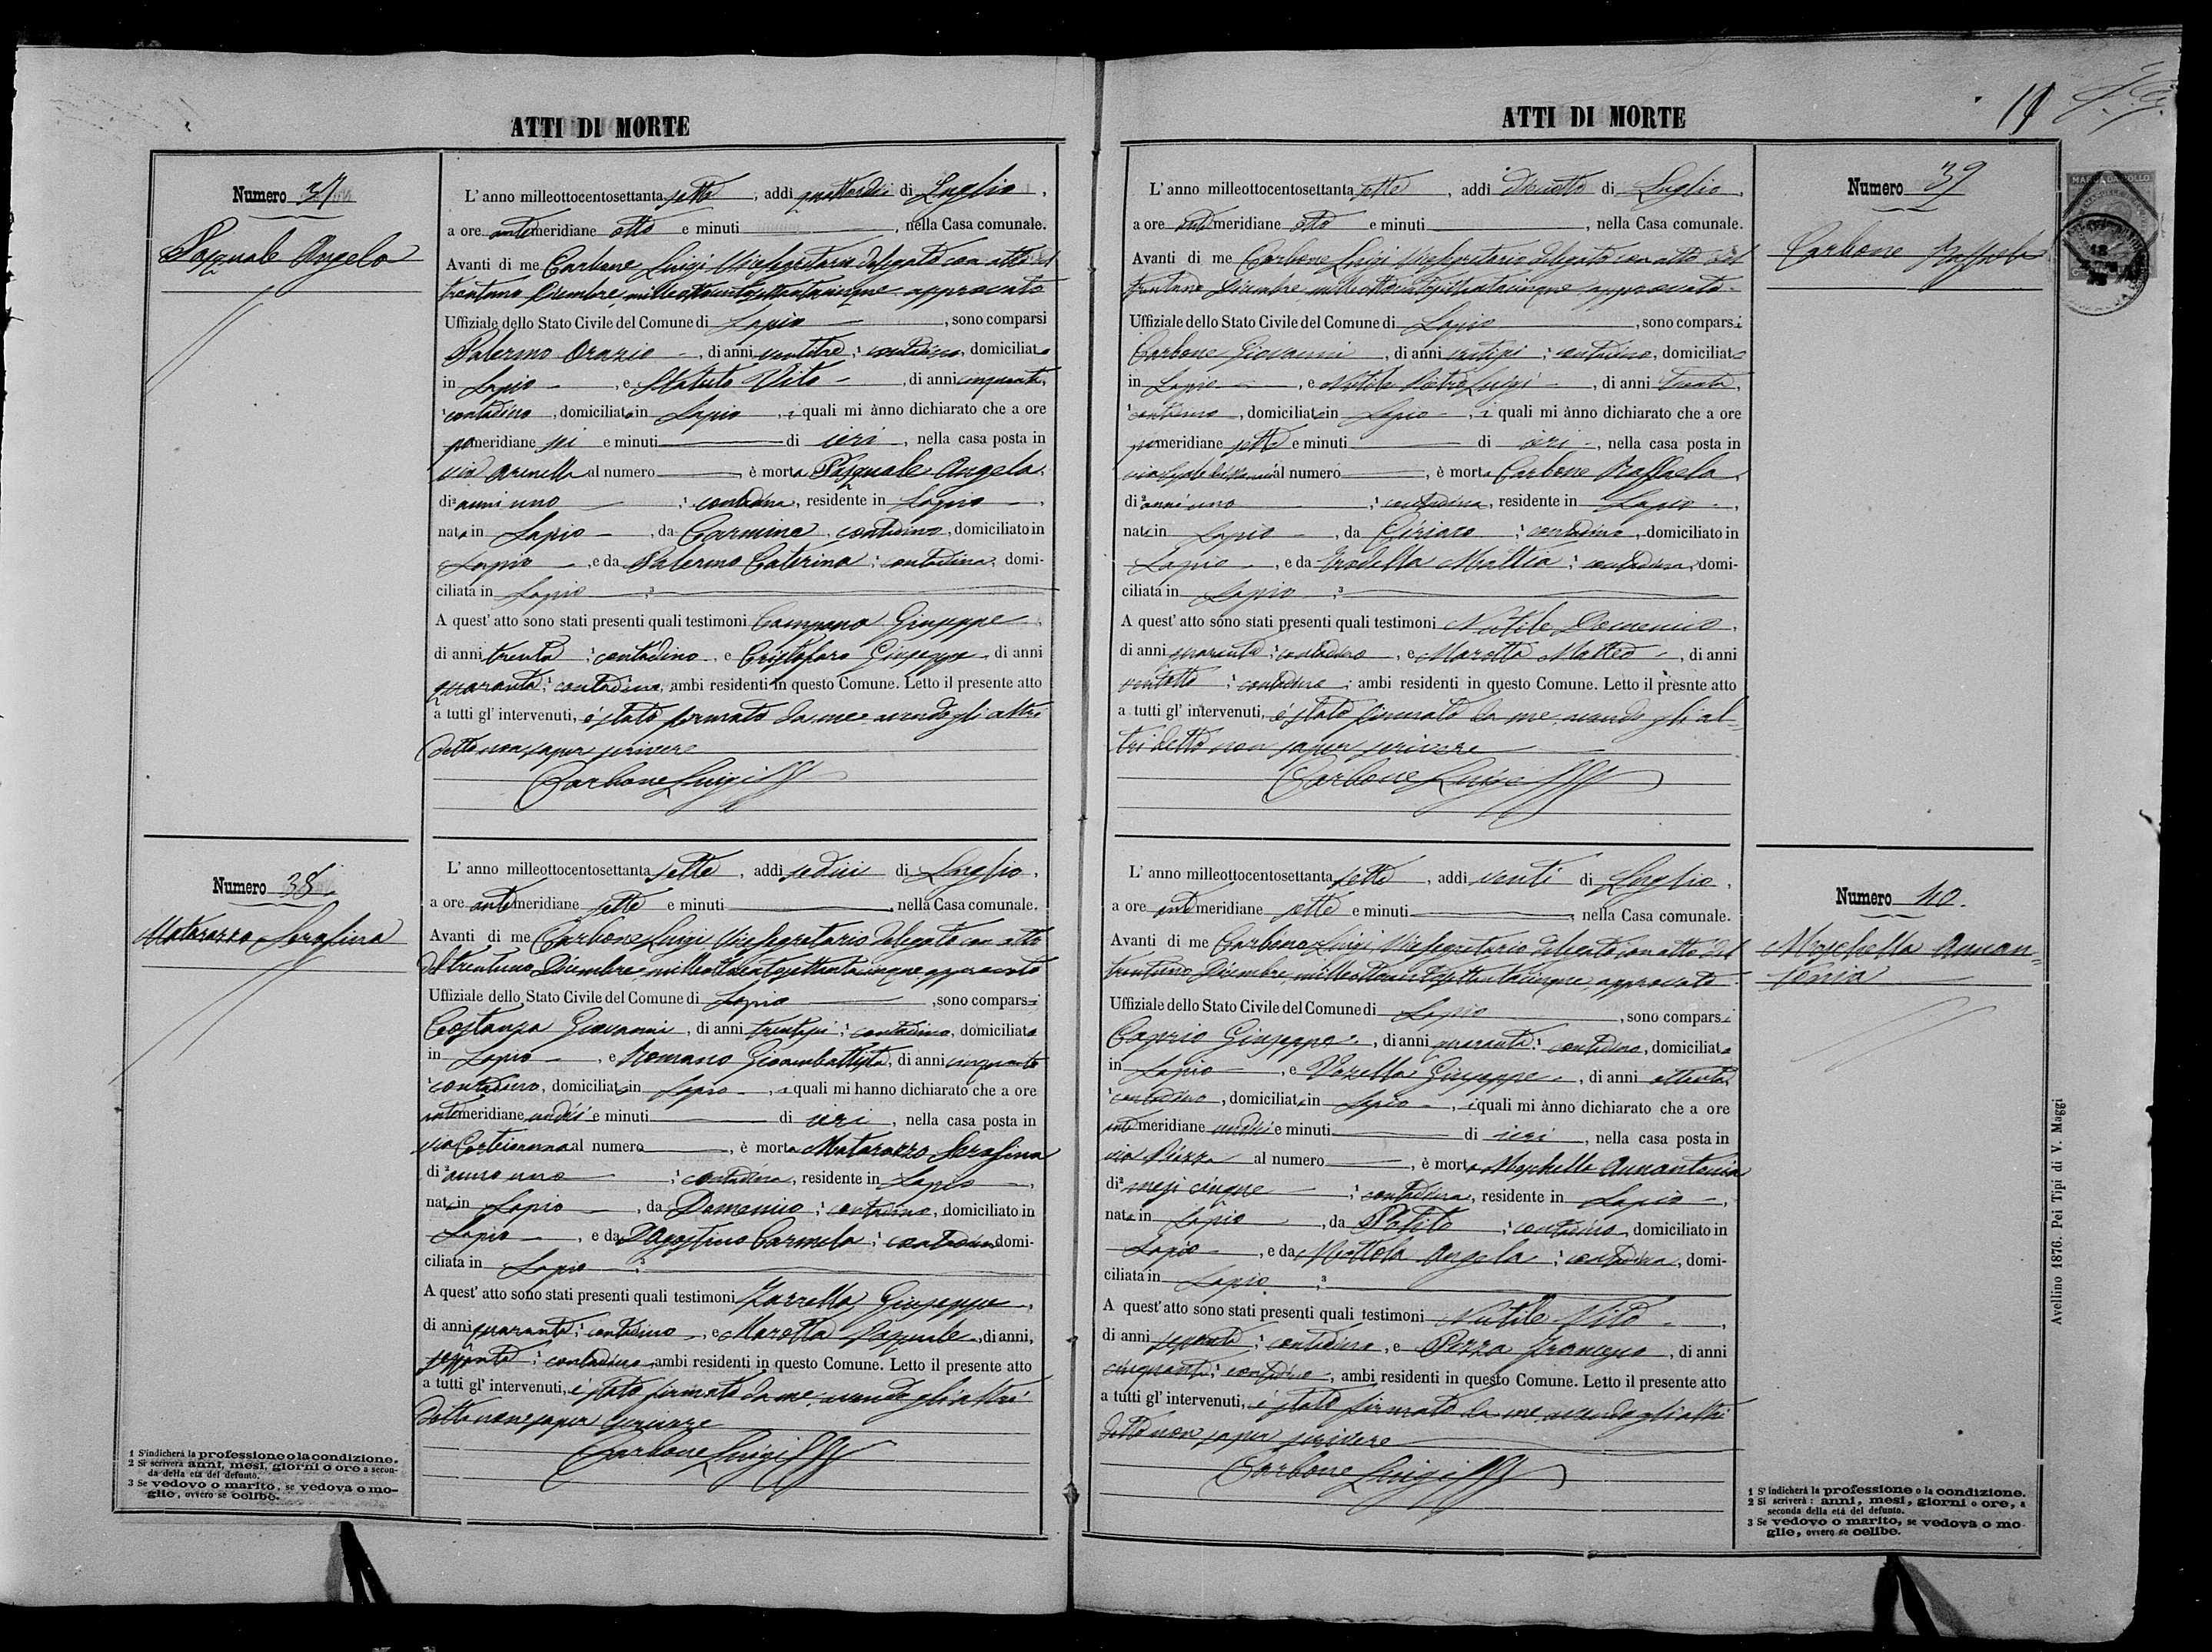 ATTI DI MORTE
Numero 37
Pasquale Angela
L' anno milleottocentosettanta sette, addì quattordici di Luglio,
a ore antemeridiane otto e minuti, nella Casa comunale.
Avanti di me Carbone Luigi Vicesegretario delegato con atto del
trentuno Dicembre milleottocentosettantacinque approvato
Uffiziale dello Stato Civile del Comune di Lapio, sono comparsi
Palermo Orazio, di anni ventitre, contadino, domiciliato
in Lapio, e Statuto Vito, di anni cinquanta,
contadino, domiciliato in Lapio, i quali mi ànno dichiarato che a ore
pomeridiane sei e minuti di ieri, nella casa posta in
via al numero, è morta Pasquale Angela
di anni uno, contadina, residente in Lapio,
nata in Lapio, da Carmine, contadino, domiciliato in
Lapio, e da Palermo Caterina, contadina, domi-
ciliata in Lapio
A quest' atto sono stati presenti quali testimoni Campana Giuseppe,
di anni trenta, contadino, e Cristofaro Giuseppe, di anni
quaranta, contadino, ambi residenti in questo Comune. Letto il presente atto
a tutti gl' intervenuti, è stato firmato da me avendo gli altri
detto non saper scrivere
Carbone Luigi
Numero 38
Matarazzo Serafina
L' anno milleottocentosettanta sette, addì sedici di Luglio,
a ore antemeridiane sette e minuti, nella Casa comunale.
Avanti di me Carbone Luigi Vicesegretario delegato con atto
del trentuno Dicembre milleottocentosettantacinque approvato
Uffiziale dello Stato Civile del Comune di Lapio, sono comparsi
Costanza Giovanni, di anni trentasei, contadino, domiciliato
in Lapio, e Romano Giovambattista, di anni cinquanta
contadino, domiciliato in Lapio, i quali mi hanno dichiarato che a ore
antemeridiane undici e minuti di ieri, nella casa posta in
via al numero, è morta Matarazzo Serafina
di anno uno, contadina, residente in Lapio,
nata in Lapio, da Domenico, contadino, domiciliato in
Lapio, e da D'Agostino Carmela, contadina domi-
ciliata in Lapio
A quest' atto sono stati presenti quali testimoni Zarrella Giuseppe,
di anni quaranta, contadino, e Marotta Pasquale, di anni,
sessanta, contadino, ambi residenti in questo Comune. Letto il presente atto
a tutti gl' intervenuti, è stato firmato da me avendo gli altri
detto non saper scrivere
Carbone Luigi
1 S'indicherà la professione o la condizione.
2 Si scriverà anni, mesi, giorni o ore a secon-
da della età del defunto.
3 Se vedovo o marito, se vedova o mo-
glie, ovvero se celibe.
ATTI DI MORTE
MARCA DA BOLLO
Numero 39
Carbone Raffaela
L' anno milleottocentosettanta sette, addì diciotto di Luglio,
a ore antemeridiane otto e minuti, nella Casa comunale.
Avanti di me Carbone Luigi Vicesegretario delegato con atto del
trentuno Dicembre milleottocentosettantacinque approvato
Uffiziale dello Stato Civile del Comune di Lapio, sono comparsi
Carbone Giovanni, di anni ventisei, contadino, domiciliato
in Lapio, e Nutile Pietro Luigi, di anni trenta,
contadino, domiciliato in Lapio, i quali mi ànno dichiarato che a ore
pomeridiane sette e minuti di ieri, nella casa posta in
via al numero, è morta Carbone Raffaela,
di anni uno, contadina, residente in Lapio,
nata in Lapio, da Ciriaco, contadino, domiciliato in
Lapio, e da Mattia, contadina, domi-
ciliata in Lapio
A quest' atto sono stati presenti quali testimoni Nutile Domenico,
di anni quaranta, contadino, e Marotta Matteo, di anni
ventotto, contadino, ambi residenti in questo Comune. Letto il presnte atto
a tutti gl' intervenuti, è stato firmato da me avendo gli al-
tri detto non saper scrivere
Carbone Luigi
Numero 40.
Moschella Annan=
tonia
L' anno milleottocentosettanta sette, addì venti di Luglio,
a ore antemeridiane sette e minuti, nella Casa comunale.
Avanti di me Carbone Luigi Vicesegretario delegato con atto del
trentuno Dicembre milleottocentosettantacinque approvato
Uffiziale dello Stato Civile del Comune di Lapio, sono comparsi
Caprio Giuseppe, di anni quaranta, contadino, domiciliato
in Lapio, e Giuseppe, di anni ottanta
contadino, domiciliato in Lapio, i quali mi ànno dichiarato che a ore
antemeridiane undici e minuti di ieri, nella casa posta in
via Piazza al numero, è morta Moschella Annantonia
di mesi cinque, contadina, residente in Lapio,
nata in Lapio, da, contadino, domiciliato in
Lapio, e da Mottola Angela, contadina, domi-
ciliata in Lapio
A quest' atto sono stati presenti quali testimoni Nutile Vito,
di anni, contadino, e Pezza Francesco, di anni
cinquanta, contadino, ambi residenti in questo Comune. Letto il presente atto
a tutti gl' intervenuti, è stato firmato da me avendo gli altri
detto non saper scrivere
Carbone Luigi
1 S' indicherà la professione o la condizione.
2 Si scriverà: anni, mesi, giorni o ore, a
seconda della età del defunto.
3 Se vedovo o marito, se vedova o mo-
glie, ovvero se celibe.
Avellino 1876. Pei Tipi di V. Maggi